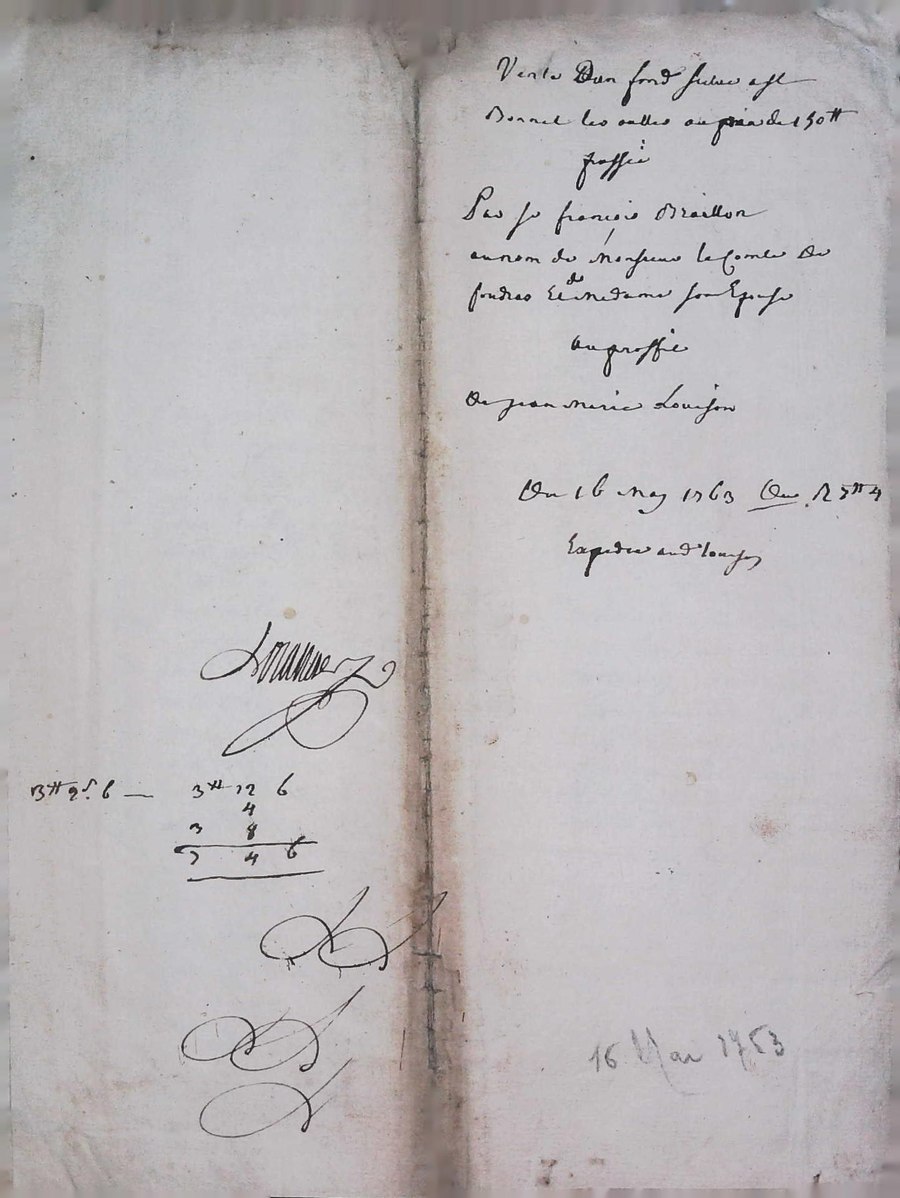 Vente Dun fond situé a st
Bonnet les oulles au prix de 150tt
passée
Par sr françois Braillon
au nom de Monsieur le Comte de
foudras Et de Madame son Epouse
au proffit
De jean Marie Louison
Du 16 May 1763
Expediée aud Louison
3tt 12 6
4
3 8
7 4 6
16 Mai 1763